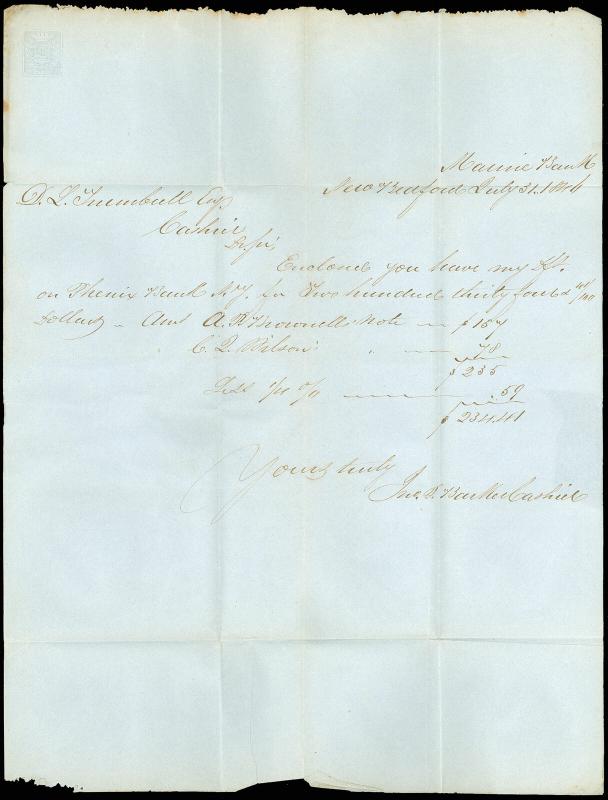 Marine Bank
New Bedford July 31. 1846
D. L. Trumbull Esq.
Cashier
Dr Sir
Enclosed you have my Dft.
on Phenix Bank N.Y. for Two hundred thirty four & 41/100
Dollars – Amt A. R. Brownell's Note — $157
C. L. Wilson's " — 78
$235
Less 1/4 % — .59
$234.41
Yours truly
Jno. R. Barker Cashier